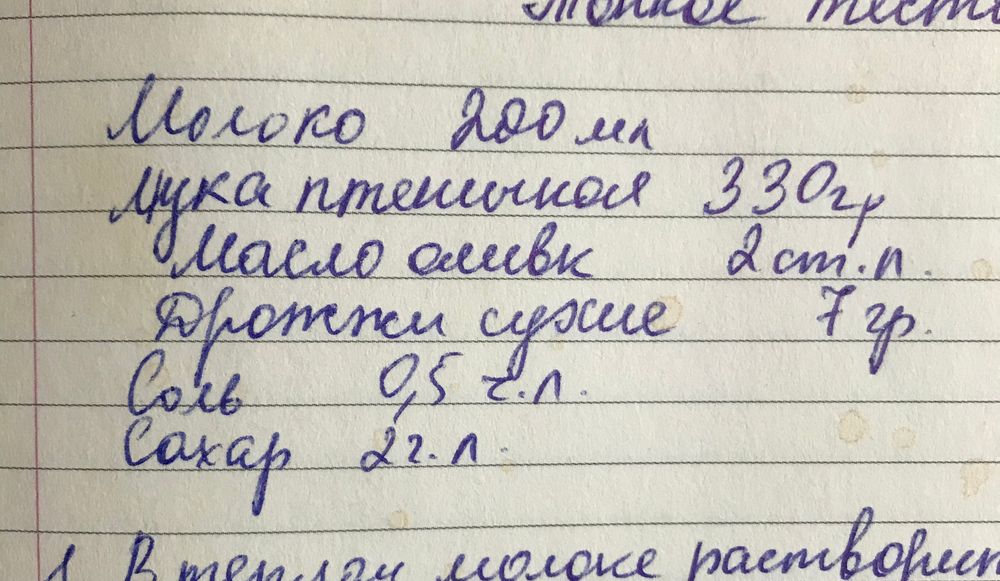 Тонкое тесто
Молоко 200 мл
Мука пшеничная 330гр
Масло оливк 2 ст.л.
Дрожжи сухие 7 гр.
Соль 0,5 ч.л.
Сахар 2 ч.л.
1. В теплом молоке раствори